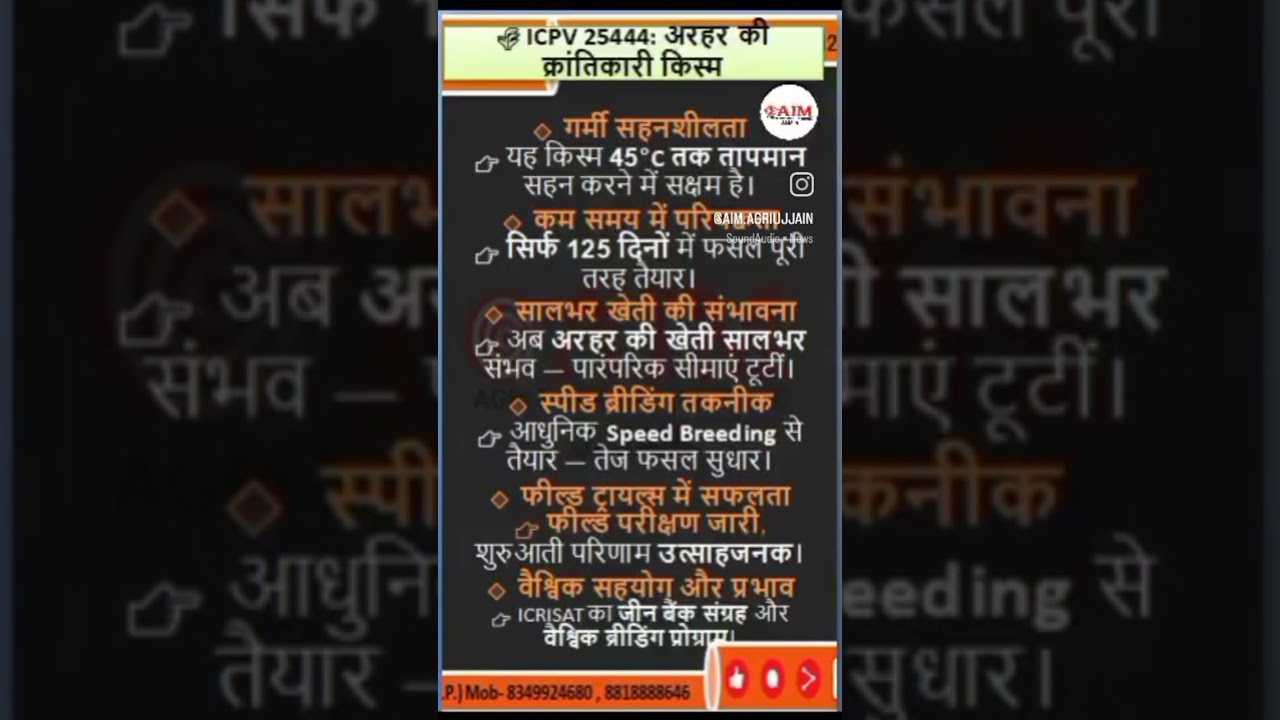 ICPV 25444: अरहर की
क्रांतिकारी किस्म
AIM
गर्मी सहनशीलता
यह किस्म 45°C तक तापमान
सहन करने में सक्षम है।
@AIM.AGRIUJJAIN
SoundAudio • News
कम समय में
सिर्फ 125 दिनों में फसल पूरी
तरह तैयार।
सालभर खेती की संभावना
अब अरहर की खेती सालभर
संभव — पारंपरिक सीमाएं टूटीं।
स्पीड ब्रीडिंग तकनीक
आधुनिक Speed Breeding से
तैयार — तेज फसल सुधार।
फील्ड ट्रायल्स में सफलता
फील्ड परीक्षण जारी,
शुरुआती परिणाम उत्साहजनक।
वैश्विक सहयोग और प्रभाव
ICRISAT का जीन बैंक संग्रह और
वैश्विक ब्रीडिंग प्रोग्राम।
.P.) Mob- 8349924680 , 8818888646